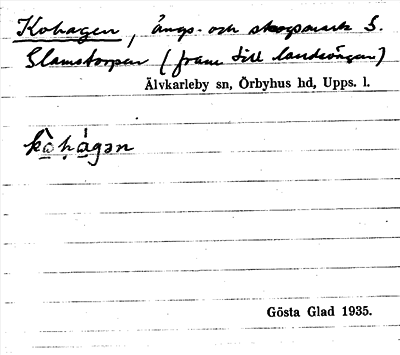 Kohagen, ängs- och skogsmark S.
Slamstorpen (fram till landsvägen)
Älvkarleby sn, Örbyhus hd, Upps. l.
kòhágən
Gösta Glad 1935.